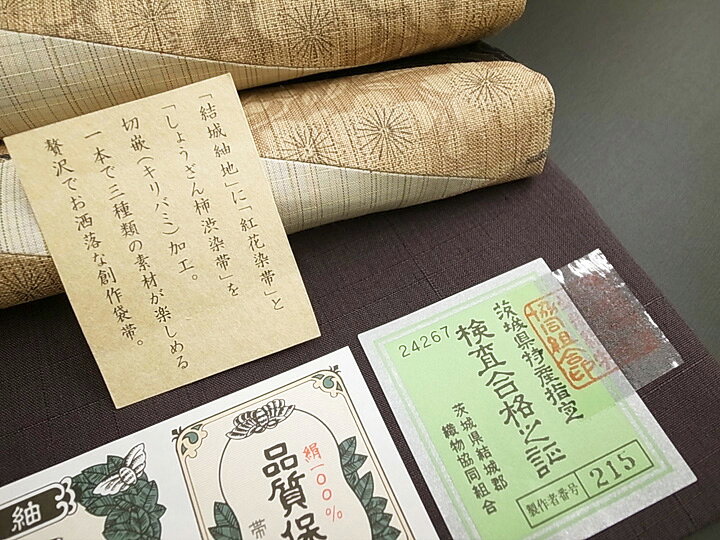 「結城紬地」に「紅花染帯」と
「しょうざん柿渋染帯」を
切嵌（キリバミ）加工。
一本で三種類の素材が楽しめる
贅沢でお洒落な創作袋帯。
茨城県特産指定
検査合格之証
24267
茨城県結城郡
織物協同組合
製作者番号
215
協同組合印
絹一〇〇％
品質保
帯
紬